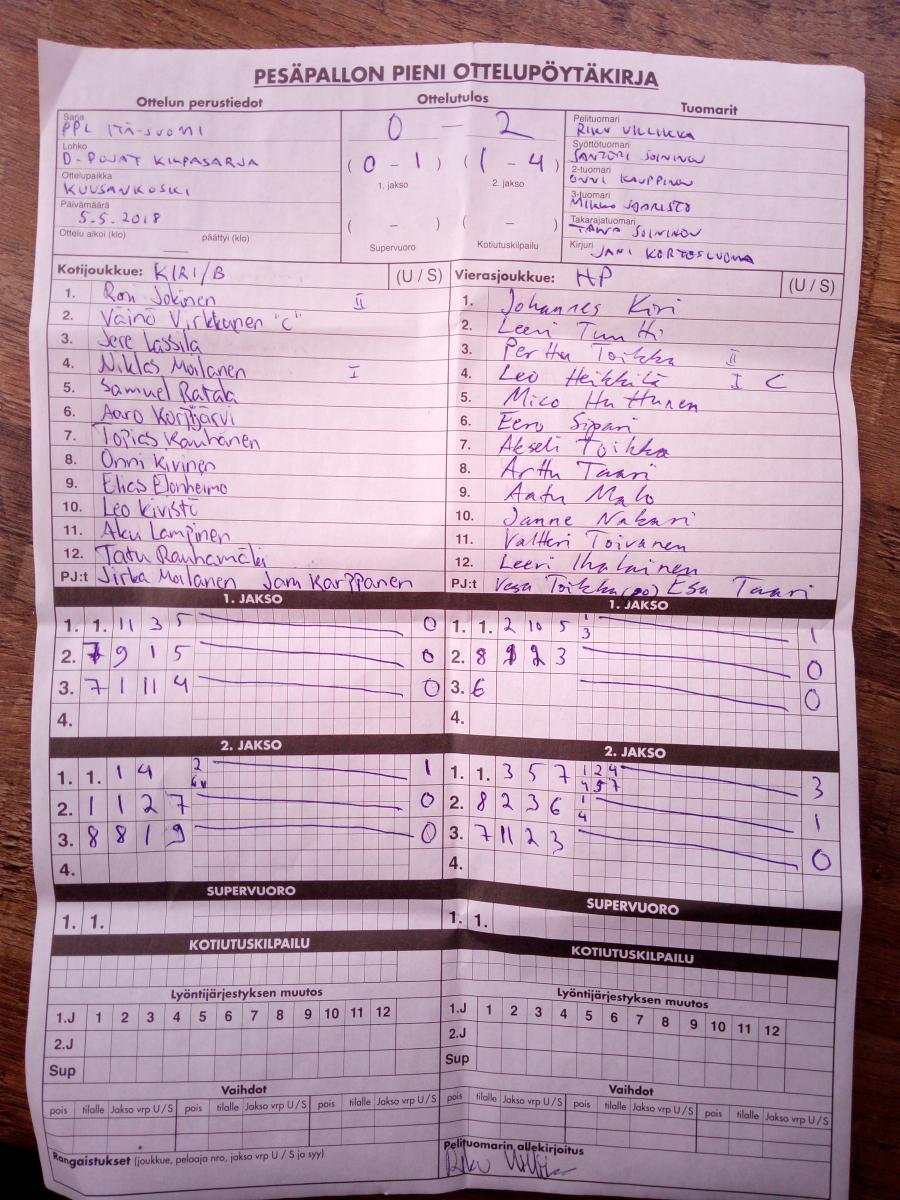 PESÄPALLON PIENI OTTELUPÖYTÄKIRJA
Ottelun perustiedot
Ottelutulos
Tuomarit
Sarja
PPL ITÄ-SUOMI
Lohko
D-POJAT KILPASARJA
Ottelupaikka
KUUSANKOSKI
Päivämäärä
5.5.2018
Ottelu alkoi (klo) päättyi (klo)
0 — 2
(0 - 1) (1 - 4)
1. jakso 2. jakso
( - ) ( - )
Supervuoro Kotiutuskilpailu
Pelituomari
RIKU VILLIKKA
Syöttötuomari
SANTERI SOININEN
2-tuomari
ONNI KAUPPINEN
3-tuomari
MIKKO SAARISTO
Takarajatuomari
SOININEN
Kirjuri
JANI KORTESLUOMA
Kotijoukkue: KIRI/B (U / S)
1. Roni Jokinen II
2. Väinö Virkkunen "C"
3. Jere Lassila
4. Niklas Moilanen I
5. Samuel Ratala
6. Aaro Korpijärvi
7. Topias Rauhanen
8. Onni Kivinen
9. Elias Elonheimo
10. Leo Kivistö
11. Aku Lampinen
12. Tatu Rauhamäki
PJ:t Jirka Moilanen Jani Karppanen
Vierasjoukkue: HP (U / S)
1. Johannes Kiri
2. Leevi Tuutti
3. Perttu Toikka II
4. Leo Heikkilä I C
5. Mico Huttunen
6. Eero Sipari
7. Akseli Toikka
8. Arttu Taari
9. Aatu Malo
10. Janne Nakari
11. Valtteri Toivanen
12. Leevi Ihalainen
PJ:t Vesa Toikka (po) Esa Taari
1. JAKSO
1. 1. 11 3 5 0
2. 7 9 1 5 0
3. 7 1 11 4 0
4.
1. JAKSO
1. 1. 2 10 5 1 3 1
2. 8 1 2 3 0
3. 6 0
4.
2. JAKSO
1. 1. 1 4 2 6v 1
2. 1 1 2 7 0
3. 8 8 1 9 0
4.
2. JAKSO
1. 1. 3 5 7 1 2 4 4 5 7 3
2. 8 2 3 6 1 4 1
3. 7 11 2 3 0
4.
SUPERVUORO
1. 1.
SUPERVUORO
1. 1.
KOTIUTUSKILPAILU
KOTIUTUSKILPAILU
Lyöntijärjestyksen muutos
1.J 1 2 3 4 5 6 7 8 9 10 11 12
2.J
Sup
Lyöntijärjestyksen muutos
1.J 1 2 3 4 5 6 7 8 9 10 11 12
2.J
Sup
Vaihdot
pois tilalle Jakso vrp U / S pois tilalle Jakso vrp U / S pois tilalle Jakso vrp U / S
Vaihdot
pois tilalle Jakso vrp U / S pois tilalle Jakso vrp U / S pois tilalle Jakso vrp U / S
Rangaistukset (joukkue, pelaaja nro, jakso vrp U / S ja syy)
Pelituomarin allekirjoitus